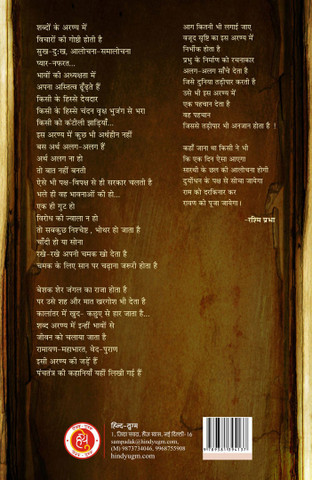 शब्दों के अरण्य में
विचारों की गोष्ठी होती है
सुख-दुःख, आलोचना-समालोचना
प्यार-नफरत...
भावों की अध्यक्षता में
अपना अस्तित्व ढूँढ़ते हैं
किसी के हिस्से देवदार
किसी के हिस्से चंदन वृक्ष भुजंग से भरा
किसी को कंटीली झाड़ियाँ...
इस अरण्य में कुछ भी अर्थहीन नहीं
बस अर्थ अलग-अलग हैं
अर्थ अलग ना हो
तो बात नहीं बनती
ऐसे भी पक्ष-विपक्ष से ही सरकार चलती है
भले ही वह भावनाओं की हो...
एक ही गुट हो
विरोध की ज्वाला न हो
तो सबकुछ निश्चेष्ट , भोथर हो जाता है
चाँदी हो या सोना
रखे-रखे अपनी चमक खो देता है
चमक के लिए सान पर चढ़ाना जरूरी होता है
बेशक शेर जंगल का राजा होता है
पर उसे शह और मात खरगोश भी देता है
कालांतर में खुद- कछुए से हार जाता है...
शब्द अरण्य में इन्हीं भावों से
जीवन को चलाया जाता है
रामायण-महाभारत, वेद-पुराण
इसी अरण्य की जड़ें हैं
पंचतंत्र की कहानियाँ यहीं लिखी गई हैं
आग कितनी भी लगाई जाए
वजूद सृष्टि का इस अरण्य में
निर्भीक होता है
प्रभु के निर्माण की रचनाकार
अलग-अलग साँचे देता है
जिसे दुनिया तहरीर करती है
उसे भी इस अरण्य में
एक पहचान देता है
वह पहचान
जिससे तहरीर भी अनजान होता है !
कहाँ जाना था किसी ने भी
कि एक दिन ऐसा आएगा
सारथी के छल की आलोचना होगी
दुर्योधन के पक्ष से सोचा जायेगा
राम को दरकिनार कर
रावण को पूजा जायेगा।
-रश्मि प्रभा
हिन्द-युग्म
1, जिया सराय, हौज खास, नई दिल्ली-16
sampadak@hindyugm.com
(M) 9873734046, 9968755908
hindyugm.com